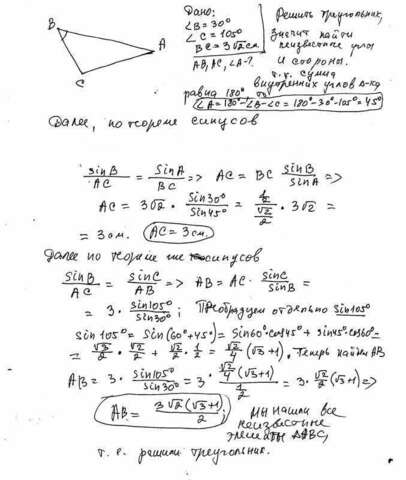 B
A
C
Дано:
∠B = 30°
∠C = 105°
BC = 3√2 см
AB, AC, ∠A - ?
Решить треугольник,
значит найти
неизвестные углы
и стороны.
т.к. сумма
внутренних углов Δ-ка
равна 180°, то
∠A = 180° - ∠B - ∠C = 180° - 30° - 105° = 45°
Далее, по теореме синусов
sinB/AC = sinA/BC => AC = BC sinB/sinA =>
AC = 3√2 · sin30°/sin45° = (1/2)/(√2/2) · 3√2 =
= 3 см. AC = 3 см.
Далее по теореме же синусов
sinB/AC = sinC/AB => AB = AC · sinC/sinB =
= 3 · sin105°/sin30° ; Преобразуем отдельно sin105°
sin105° = sin(60°+45°) = sin60°cos45° + sin45°·cos60° =
= √3/2 · √2/2 + √2/2 · 1/2 = √2/4 (√3+1). Теперь найдём AB
AB = 3 · sin105°/sin30° = 3 · (√2/4 (√3+1))/(1/2) = 3 · √2/2 (√3+1) =>
AB = 3√2(√3+1)/2 ;
Мы нашли все
неизвестные
элементы ΔABC,
т.е. решили треугольник.